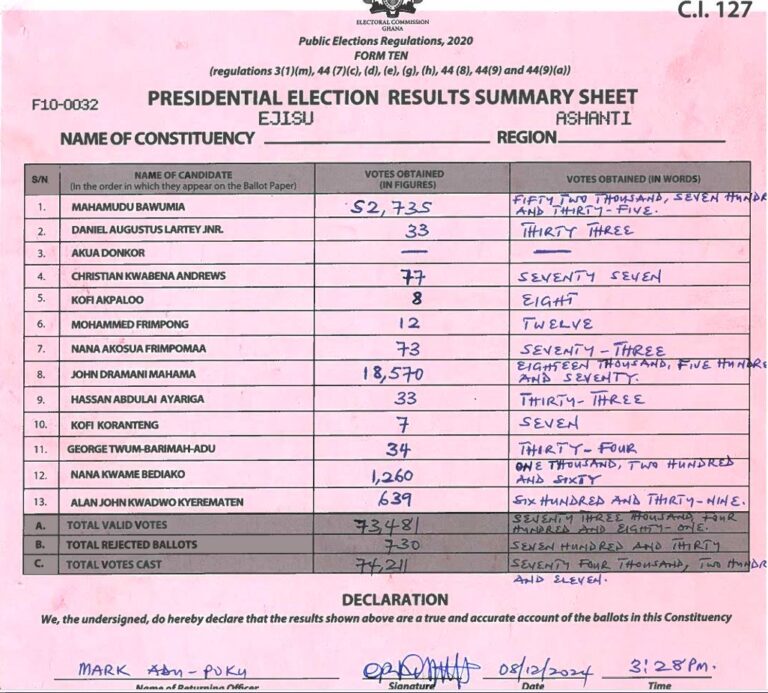 C.I. 127
ELECTORAL COMMISSION
GHANA
Public Elections Regulations, 2020
FORM TEN
(regulations 3(1)(m), 44 (7)(c), (d), (e), (g), (h), 44 (8), 44(9) and 44(9)(a))
F10-0032
PRESIDENTIAL ELECTION RESULTS SUMMARY SHEET
EJISU ASHANTI
NAME OF CONSTITUENCY REGION
S/N NAME OF CANDIDATE (In the order in which they appear on the Ballot Paper) VOTES OBTAINED (IN FIGURES) VOTES OBTAINED (IN WORDS)
1. MAHAMUDU BAWUMIA 52,735 FIFTY TWO THOUSAND, SEVEN HUNDR AND THIRTY-FIVE.
2. DANIEL AUGUSTUS LARTEY JNR. 33 THIRTY THREE
3. AKUA DONKOR — —
4. CHRISTIAN KWABENA ANDREWS 77 SEVENTY SEVEN
5. KOFI AKPALOO 8 EIGHT
6. MOHAMMED FRIMPONG 12 TWELVE
7. NANA AKOSUA FRIMPOMAA 73 SEVENTY-THREE
8. JOHN DRAMANI MAHAMA 18,570 EIGHTEEN THOUSAND, FIVE HUNDRE AND SEVENTY.
9. HASSAN ABDULAI AYARIGA 33 THIRTY-THREE
10. KOFI KORANTENG 7 SEVEN
11. GEORGE TWUM-BARIMAH-ADU 34 THIRTY-FOUR
12. NANA KWAME BEDIAKO 1,260 ONE THOUSAND, TWO HUNDRED AND SIXTY
13. ALAN JOHN KWADWO KYEREMATEN 639 SIX HUNDRED AND THIRTY-NINE.
A. TOTAL VALID VOTES 73,481 SEVENTY THREE THOUSAND, FOUR HUNDRED AND EIGHTY-ONE.
B. TOTAL REJECTED BALLOTS 730 SEVEN HUNDRED AND THIRTY
C. TOTAL VOTES CAST 74,211 SEVENTY FOUR THOUSAND, TWO HUNDR AND ELEVEN.
DECLARATION
We, the undersigned, do hereby declare that the results shown above are a true and accurate account of the ballots in this Constituency
MARK ADU-POKU 08/12/2024 3:28PM.
Name of Returning Officer Signature Date Time